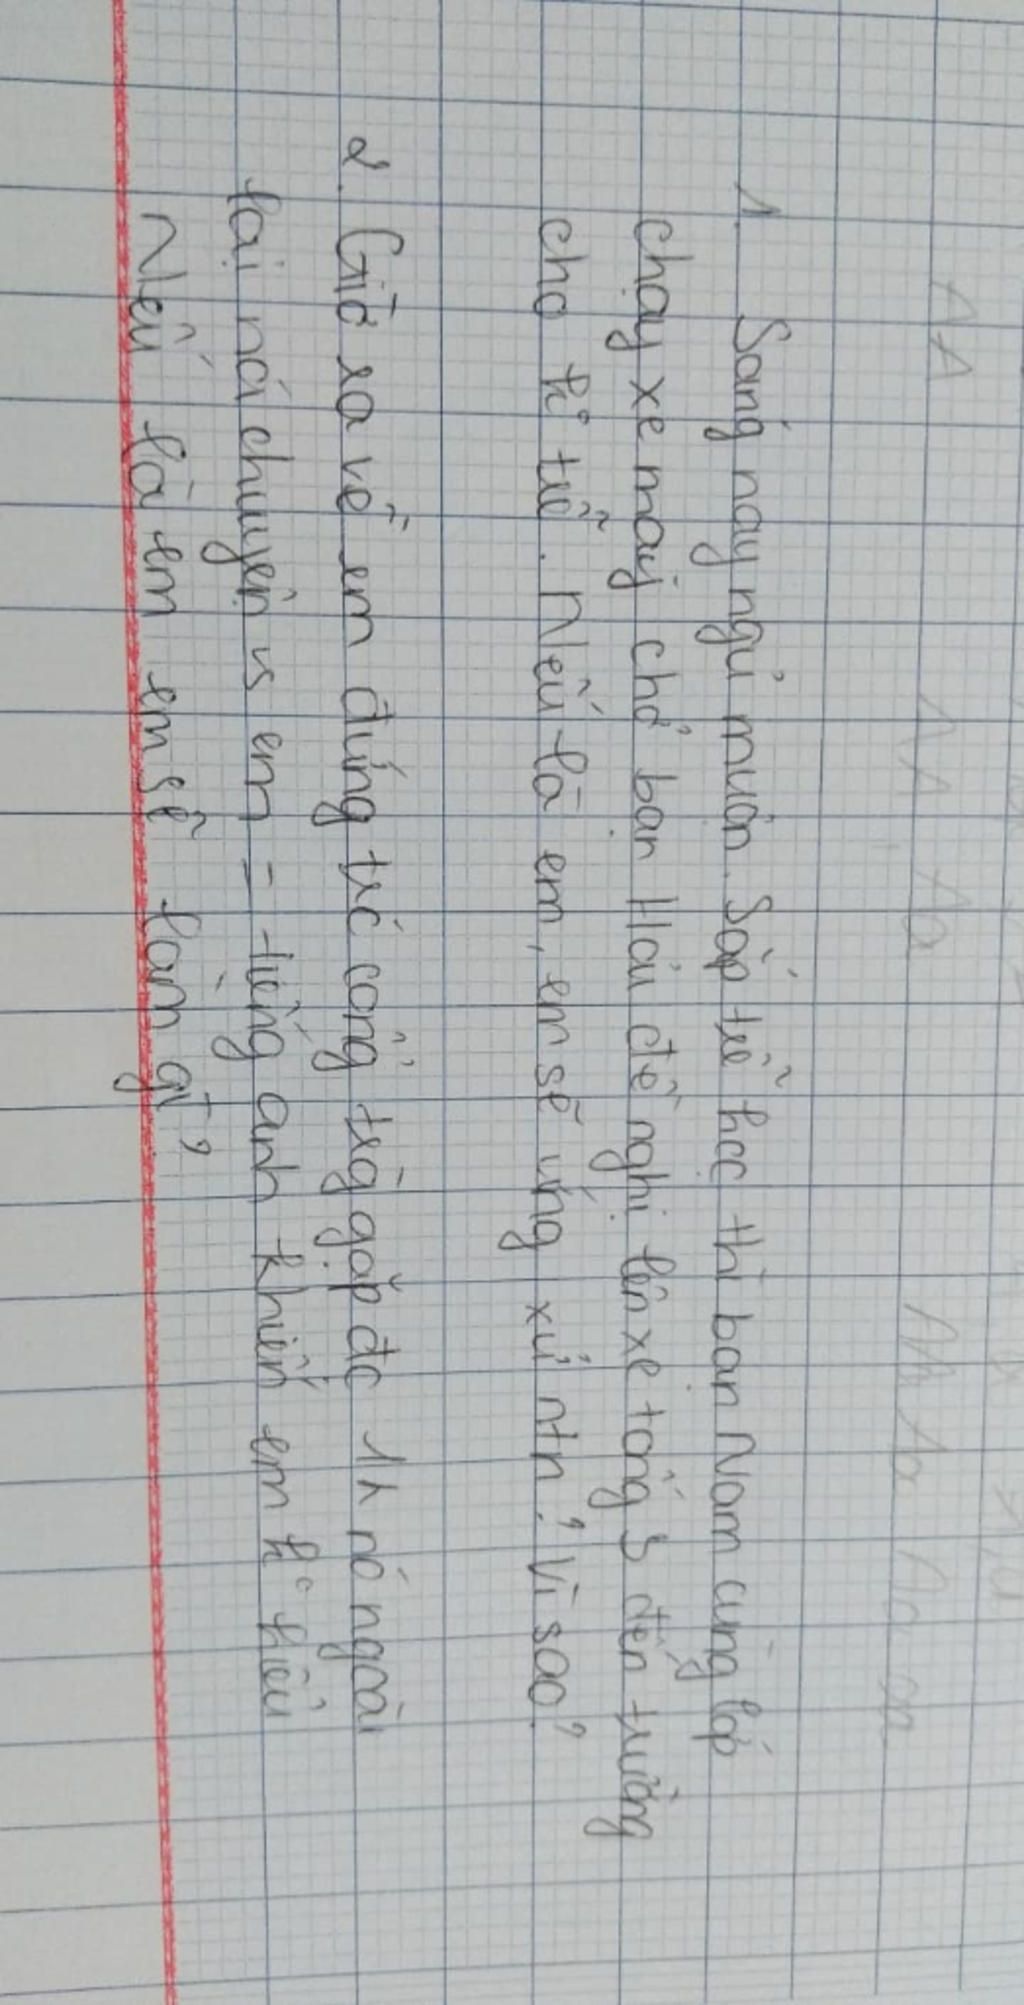 1. Sáng nay ngủ muộn. Sắp trễ học thì bạn Nam cùng lớp
chạy xe máy chở bạn Hải đề nghị lên xe tống 3 đến trường
cho k° trễ. Nếu là em, em sẽ ứng xử ntn? Vì sao?
2. Giờ ra về em đứng trc cổng trg gặp đc 1 h nó ngoài
lại nói chuyện vs em = tiếng anh khiến em k° hiểu
Nếu là em em sẽ làm gì?
AA
AA Aa
AA Aa Aa aa